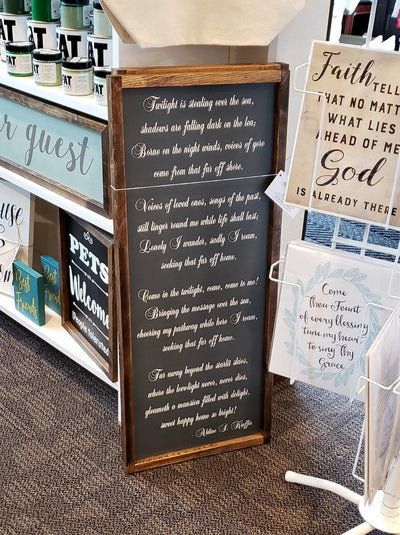 AT
AT
AT
AT
r guest
ouse
Best
friends
PETS
Welcome
People tolerated
Twilight is stealing over the sea,
shadows are falling dark on the lea;
Borne on the night winds, voices of yore
come from that far off shore.
Voices of loved ones, songs of the past,
still linger round me while life shall last;
Lonely I wander, sadly I roam,
seeking that far off home.
Come in the twilight, come, come to me!
Bringing the message over the sea,
cheering my pathway while here I roam,
seeking that far off home.
Far away beyond the starlit skies,
where the love-light never, never dies,
gleameth a mansion filled with delight,
sweet happy home so bright!
Faith TELL
THAT NO MATT
WHAT LIES
AHEAD OF ME
God
IS ALREADY THERE
Come
thou Fount
of every blessing
tune my heart
to sing thy
Grace